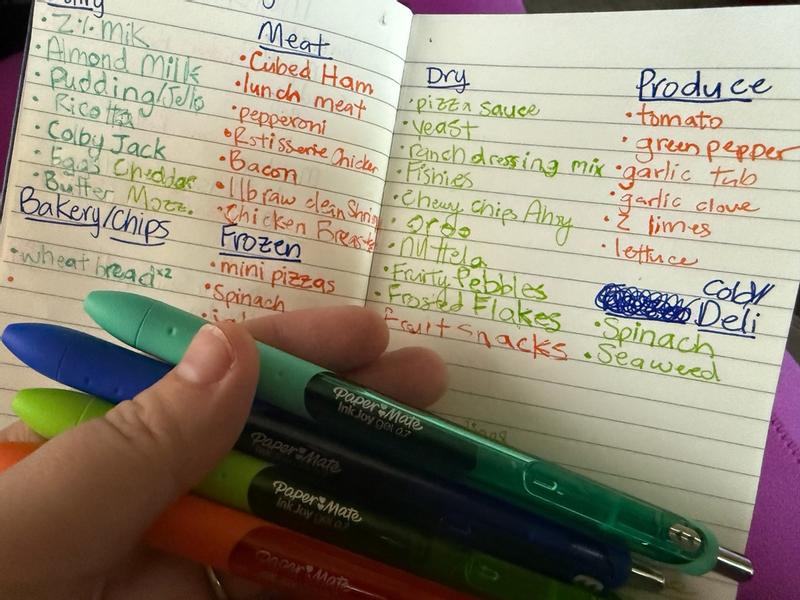 2% Milk
Almond Milk
Pudding/Jello
Ricotta
Colby Jack
Eggs Cheddar
Butter Mozz.
Bakery/Chips
wheat bread x2
Meat
Cubed Ham
lunch meat
pepperoni
Rotisserie Chicken
Bacon
1lb raw clean Shrim
Chicken Breasts
Frozen
mini pizzas
Spinach
Dry
pizza sauce
yeast
ranch dressing mix
Fishies
Chewy Chips Ahoy
Oreo
nutella
Fruity Pebbles
Frosted Flakes
fruit snacks
Produce
tomato
green pepper
garlic tub
garlic clove
2 limes
lettuce
Cold/
Deli
Spinach
Seaweed
Paper Mate
InkJoy gel 0.7
Paper Mate
Paper Mate
InkJoy gel 0.7
Paper Mate